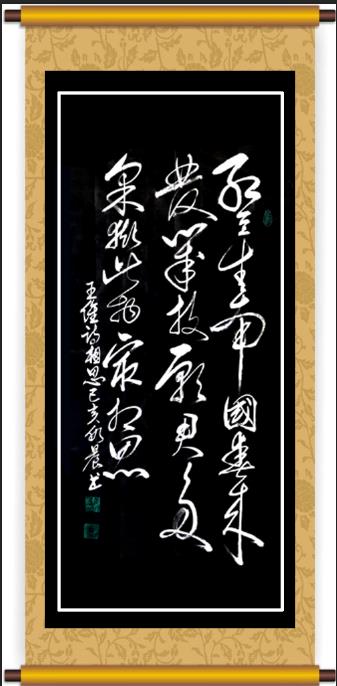 紅豆生南國春来
發幾枝願君多
采擷此物最相思
王維詩相思己亥晨书